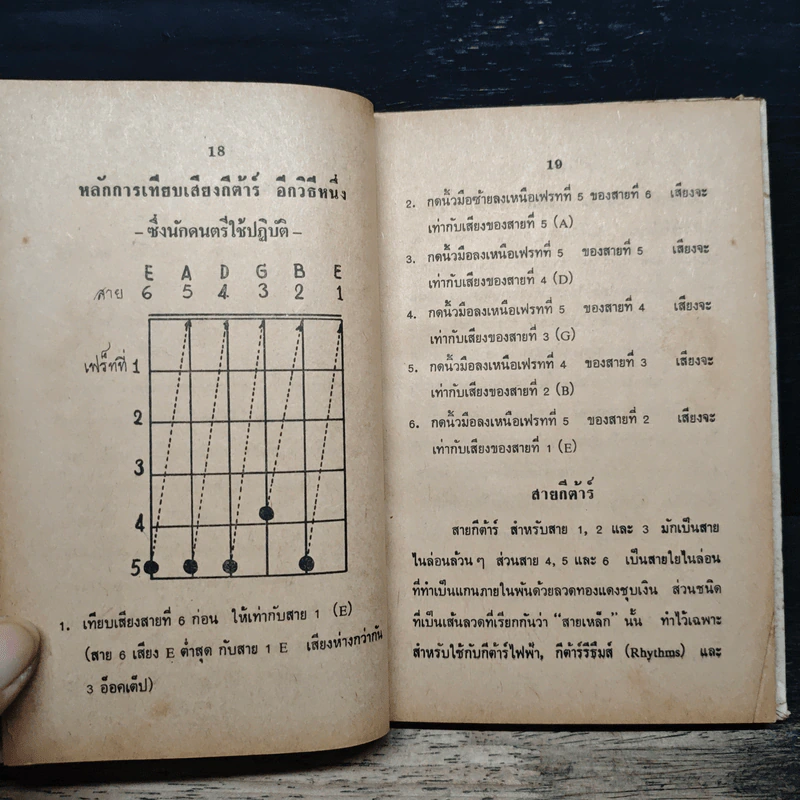 18
หลักการเทียบเสียงกีต้าร์ อีกวิธีหนึ่ง
–ซึ่งนักดนตรีใช้ปฏิบัติ–
E A D G B E
สาย 6 5 4 3 2 1
เฟร็ทที่ 1
2
3
4
5
1. เทียบเสียงสายที่ 6 ก่อน ให้เท่ากับสาย 1 (E)
(สาย 6 เสียง E ต่ำสุด กับสาย 1 E เสียงห่างกว่ากัน
3 อ็อคเต็ป)
19
2. กดนิ้วมือซ้ายลงเหนือเฟรทที่ 5 ของสายที่ 6 เสียงจะ
เท่ากับเสียงของสายที่ 5 (A)
3. กดนิ้วมือลงเหนือเฟรทที่ 5 ของสายที่ 5 เสียงจะ
เท่ากับเสียงของสายที่ 4 (D)
4. กดนิ้วมือลงเหนือเฟรทที่ 5 ของสายที่ 4 เสียงจะ
เท่ากับเสียงของสายที่ 3 (G)
5. กดนิ้วมือลงเหนือเฟรทที่ 4 ของสายที่ 3 เสียงจะ
เท่ากับเสียงของสายที่ 2 (B)
6. กดนิ้วมือลงเหนือเฟรทที่ 5 ของสายที่ 2 เสียงจะ
เท่ากับเสียงของสายที่ 1 (E)
สายกีต้าร์
สายกีต้าร์ สำหรับสาย 1, 2 และ 3 มักเป็นสาย
ไนล่อนล้วนๆ ส่วนสาย 4, 5 และ 6 เป็นสายใยไนล่อน
ที่ทำเป็นแกนภายในพันด้วยลวดทองแดงชุบเงิน ส่วนชนิด
ที่เป็นเส้นลวดที่เรียกกันว่า “สายเหล็ก” นั้น ทำไว้เฉพาะ
สำหรับใช้กับกีต้าร์ไฟฟ้า, กีต้าร์รีธึมส์ (Rhythms) และ